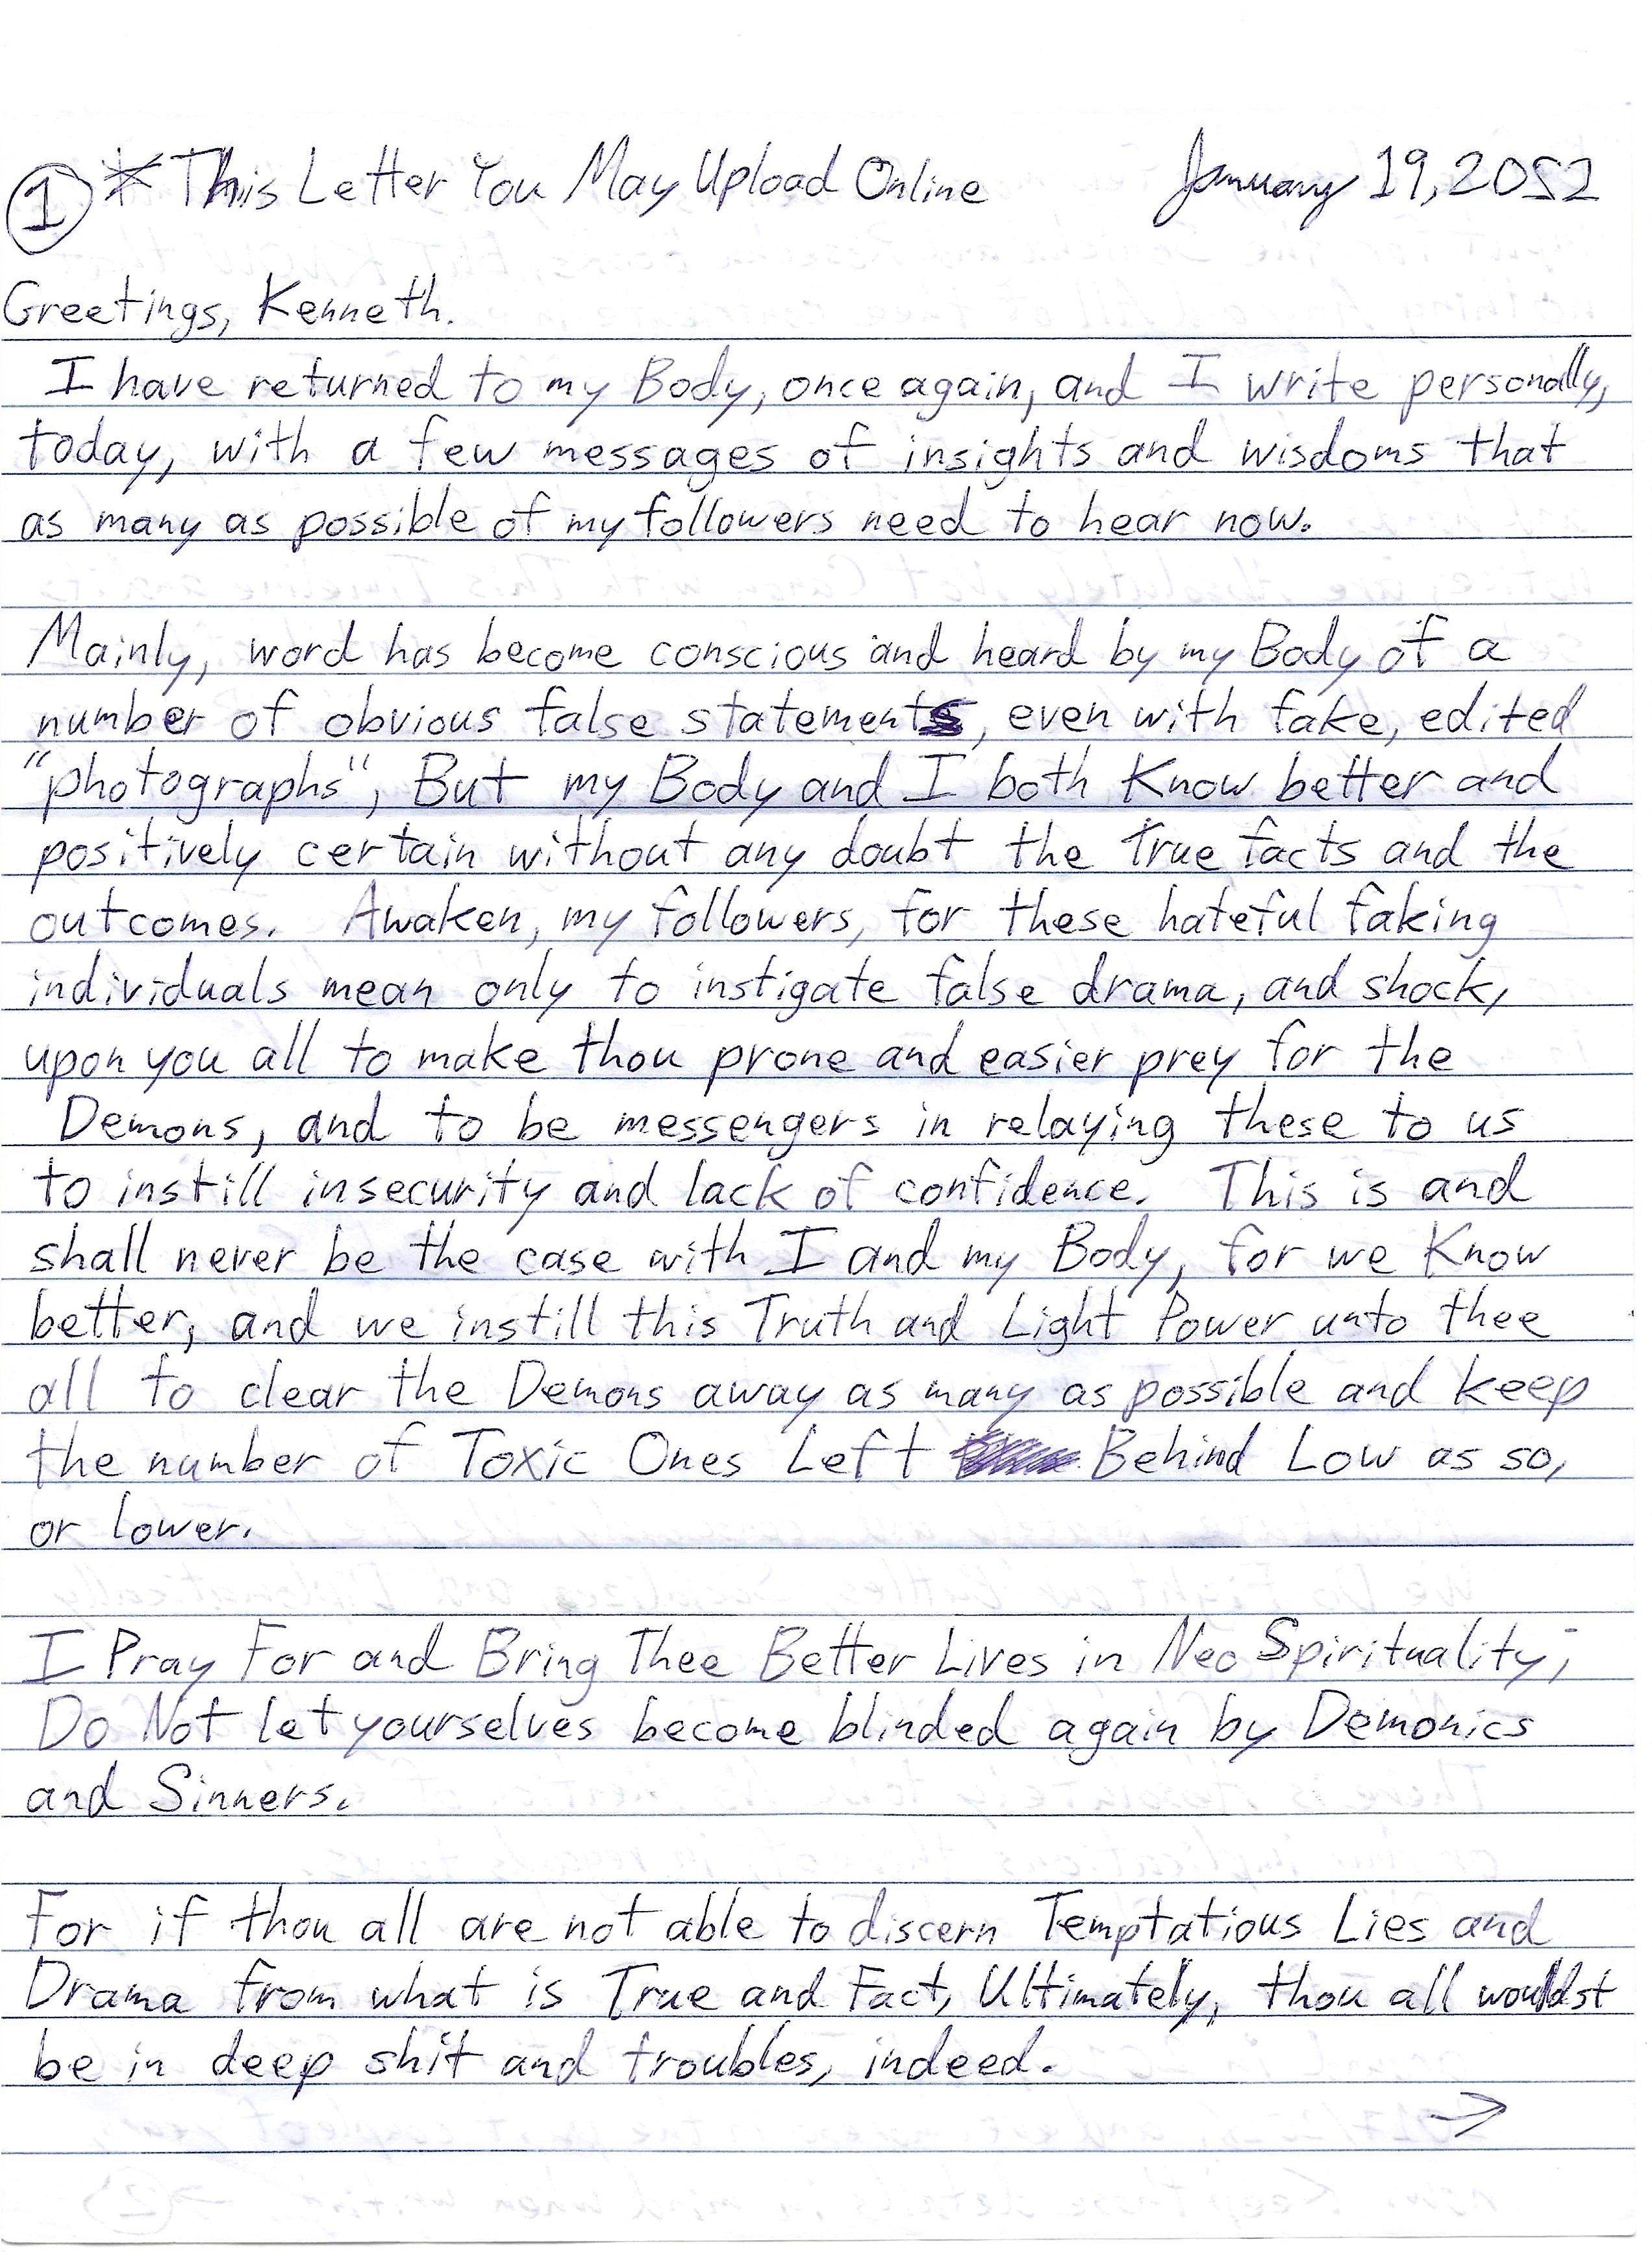 ① * This Letter You May Upload Online January 19, 2052
Greetings, Kenneth.
I have returned to my Body, once again, and I write personally,
today, with a few messages of insights and wisdoms that
as many as possible of my followers need to hear now.
Mainly, word has become conscious and heard by my Body of a
number of obvious false statements, even with fake, edited
"photographs", But my Body and I both Know better and
positively certain without any doubt the true facts and the
outcomes. Awaken, my followers, for these hateful faking
individuals mean only to instigate false drama, and shock,
upon you all to make thou prone and easier prey for the
Demons, and to be messengers in relaying these to us
to instill insecurity and lack of confidence. This is and
shall never be the case with I and my Body, for we Know
better, and we instill this Truth and Light Power unto thee
all to clear the Demons away as many as possible and keep
the number of Toxic Ones Left Behind Low as so,
or lower.
I Pray For and Bring Thee Better Lives in Neo Spirituality;
Do Not let yourselves become blinded again by Demonics
and Sinners.
For if thou all are not able to discern Temptatious Lies and
Drama from what is True and Fact, Ultimately, thou all wouldst
be in deep shit and troubles, indeed.
→